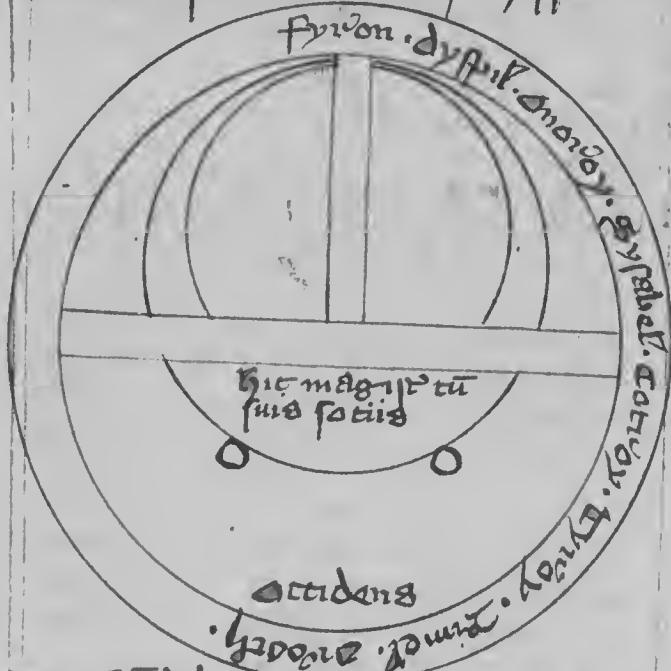 fyron · dyspil · onoroy · sysabel · cotroy · tyroy · rimel · orooth ·
hic magist' cū
suis sociis
occidens